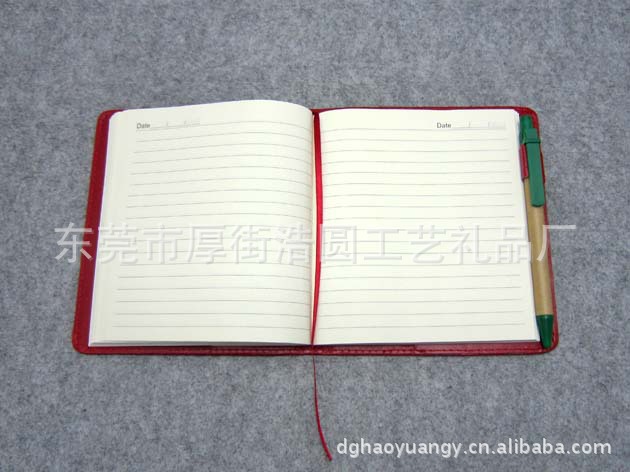 Date
Date
东莞市厚街浩圆工艺礼品厂
dghaoyuangy.cn.alibaba.com